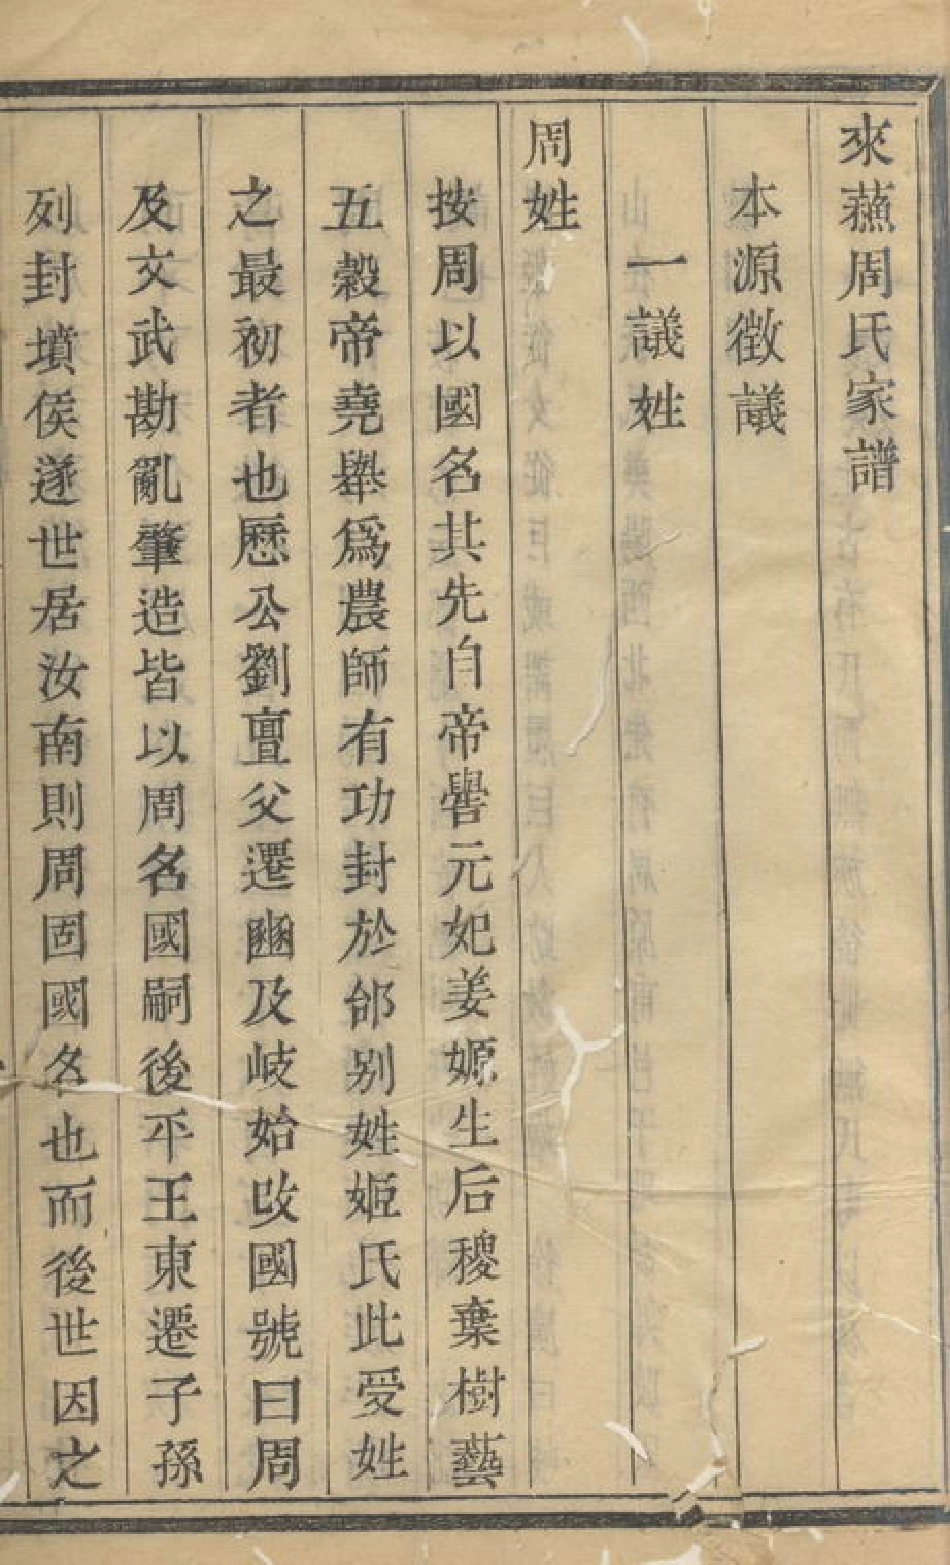 來蘓周氏家譜
本源徵議
一議姓
周姓
按周以國名其先自帝嚳元妃姜嫄生后稷棄樹藝
五穀帝堯舉爲農師有功封於邰别姓姬氏此受姓
之最初者也歷公劉亶父遷豳及岐始改國號曰周
及文武勘亂肇造皆以周名國嗣後平王東遷子孫
列封墳侯遂世居汝南則周固國名也而後世因之